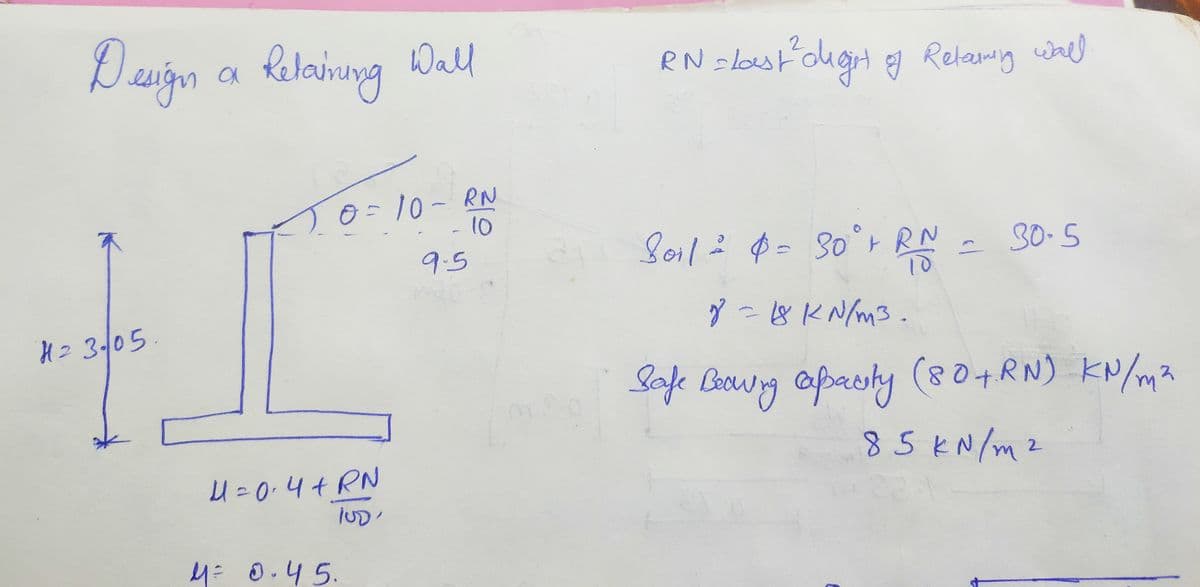 Design a Retaining Wall
RN = Last 2 digit of Retaining wall
θ = 10 - RN/10
9.5
Soil : φ = 30° + RN/10 = 30.5
γ = 18 KN/m3.
H = 3.05.
Safe Bearing Capacity (80+RN) KN/m2
85 KN/m2
μ = 0.4 + RN/100
μ = 0.45.